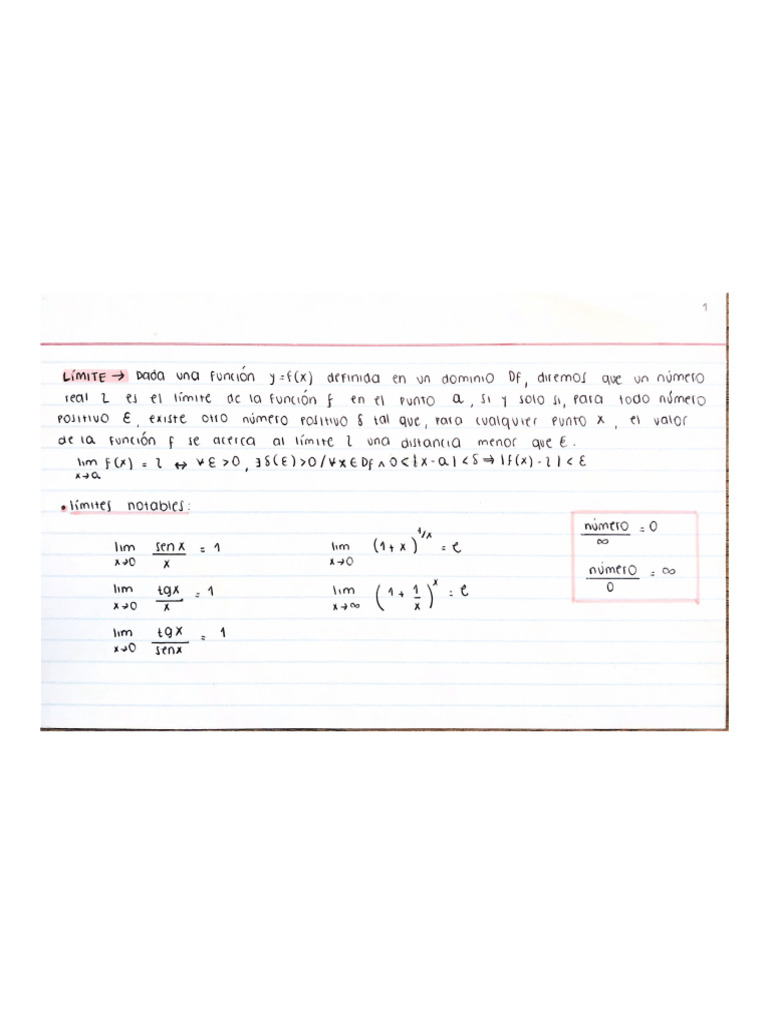 1
LÍMITE → Dada una función y=f(x) definida en un dominio Df, diremos que un número
real l es el límite de la función f en el punto a, si y solo si, para todo número
positivo ε, existe otro número positivo δ tal que, para cualquier punto x, el valor
de la función f se acerca al límite l una distancia menor que ε.
lim f(x) = l ↔ ∀ ε > 0, ∃ δ(ε) > 0 / ∀ x ∈ Df ∧ 0 < |x - a| < δ ⇒ |f(x) - l| < ε
x→a
• límites notables:
lim sen x / x = 1
x→0
lim tg x / x = 1
x→0
lim tg x / sen x = 1
x→0
lim (1 + x)^1/x = e
x→0
lim (1 + 1/x)^x = e
x→∞
número / ∞ = 0
número / 0 = ∞